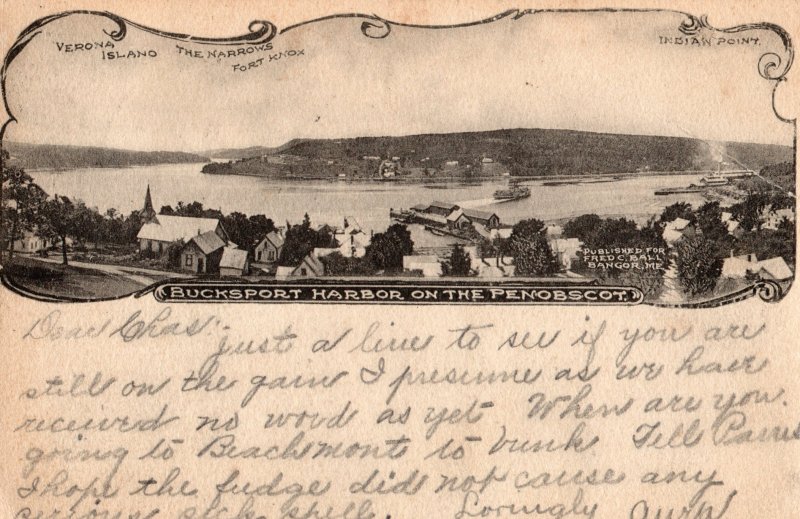 VERONA ISLAND
THE NARROWS
FORT KNOX
INDIAN POINT.
PUBLISHED FOR
FRED C. BALL
BANGOR, ME.
BUCKSPORT HARBOR ON THE PENOBSCOT.
Dear Chas:
just a line to see if you are
still on the gain I presume as we have
received no word as yet When are you
going to Beachmont to Tell
I hope the fudge did not cause any
serious sick spell. Lovingly